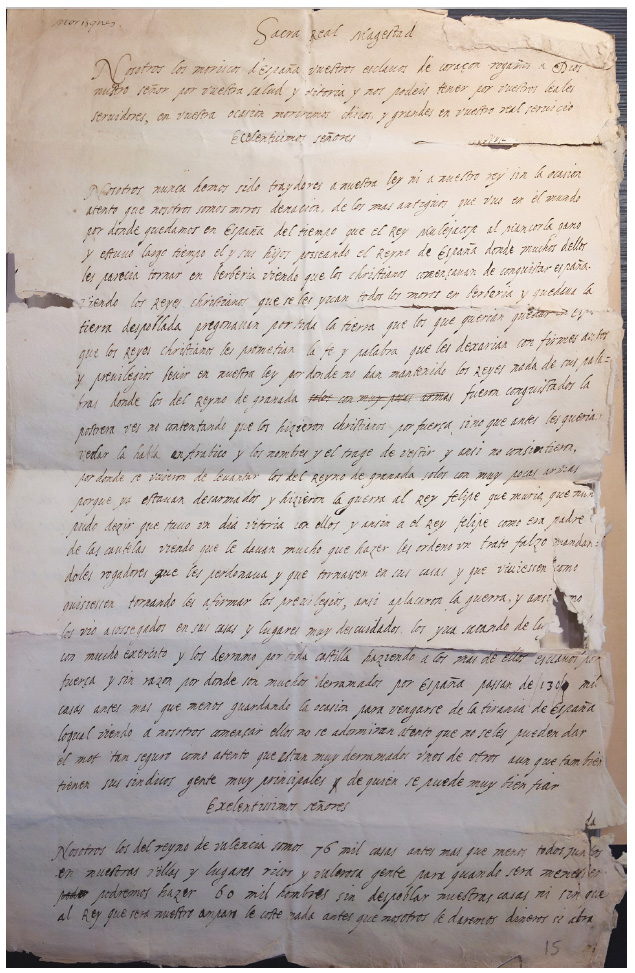 moriscos.
Sacra Real Magestad
Nosotros los moriscos d'España vuestros esclavos de coraçon rogamos a Dios
nuestro señor por vuestra salud y vitoria y nos podeis tener por vuestros leales
servidores, en vuestra ocasion moriremos chicos, y grandes en vuestro real servicio
Exelentisimos señores
Nosotros nunca hemos sido traydores a nuestra ley ni a nuestro rey sin la ocasion
atento que nosotros somos moros de nacion, de los mas antiguos que vuo en el mundo
por donde quedamos en España del tiempo que el Rey
y estuvo largo tiempo el y sus hijos poseando el Reyno de España donde muchos dellos
les parecia tornar en berberia viendo que los christianos comencavan de conquistar españa.
viendo los Reyes christianos que se les yvan todos los moros en berberia y quedava la
tierra despoblada pregonavan por toda la tierra que los que querian quedar
que los Reyes christianos les prometian la fe y palabra que les dexarian con firmes autos
y previlegios bevir en nuestra ley por donde no han mantenido los Reyes nada de sus pala-
bras donde los del Reyno de granada solos con muy pocas armas fueron conquistados la
postrera ves no contentando que los hizieron christianos por fuersa sino que antes les queria
vedar la habla y los nombres y el trage de vestir y ansi no consintieron,
por donde se uvieron de levantar los del Reyno de granada solos con muy pocas armas
porque ya estavan desarmados y hizieron la guerra al Rey felipe que muria que nun
pudo dezir que tuvo un dia vitoria con ellos y ansin a el Rey felipe como era padre
de las cautelas viendo que le davan mucho que hazer les ordeno un trato falzo mandan-
doles rogadores que les perdonava y que tornassen en sus casas y que viviessen como
quisiessen tornando les afirmar los previlegios, ansi aplacaron la guerra, y ansi como
los vio asosegados en sus casas y lugares muy descuidados. los yva sacando de
con mucho exercito y los derramo por toda castilla haziendo a los mas de ellos esclavos por
fuersa y sin razon por donde son muchos derramados por España passan de mil
casas antes mas que menos guardando la ocasion para vengarse de la tirania de España
loqual viendo a nosotros començar ellos no se adormiran atento que no seles pueden dar
el mot tan seguro como atento que estan muy derramados unos de otros aun que tambien
tienen sus sindicos gente muy principales y de quien se puede muy bien fiar
Exelentissimos señores
Nosotros los del reyno de valencia somos 76 mil casas antes mas que menos todos juntos
en nuestras villas y lugares ricos y valerosa gente para quando sera menester
podremos hazer 60 mil hombres sin despoblar nuestras casas ni sin que
al Rey que sera nuestro amparo le coste nada antes que nosotros le daremos dineros si abra
15